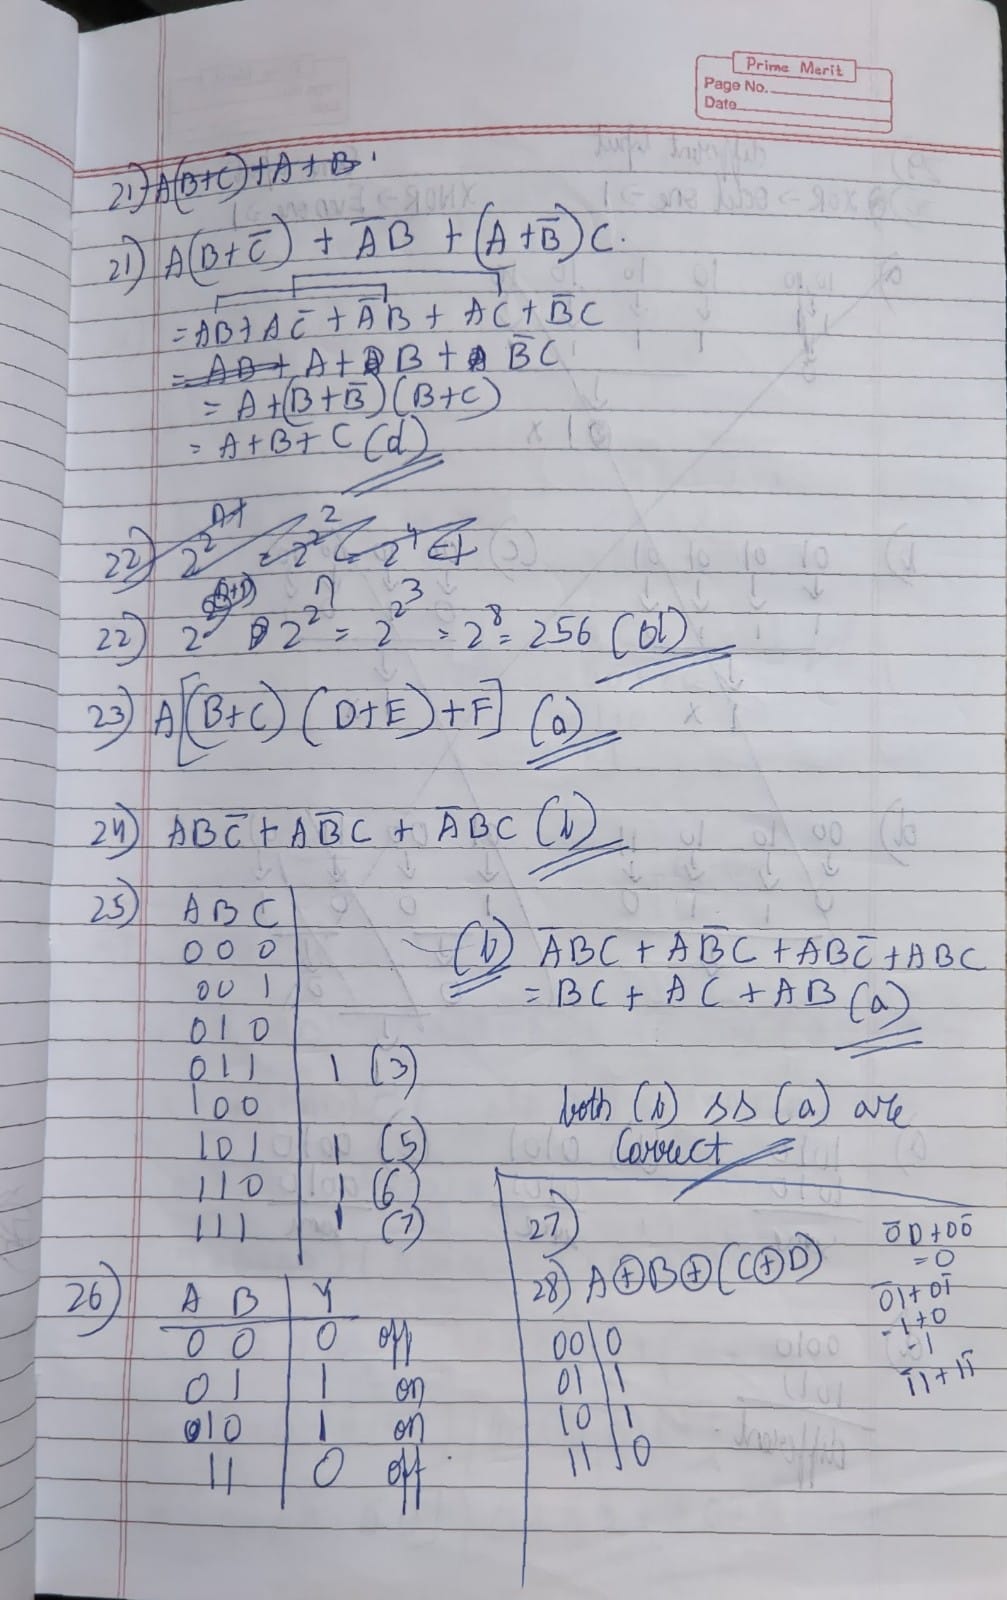 Prime Merit
Page No.
Date
21) A(B+C)+A+B.
21) A(B+C̅) + A̅B + (A+B̅)C.
= AB+AC̅ + A̅B + AC+B̅C
= AB+ A+ B + B̅C
= A+(B+B̅)(B+C)
= A+B+C (d)
22) 2^2 = 2^2^2 = 2^4
22) 2^2^n = 2^2^3 = 2^8 = 256 (d)
23) A[(B+C) (D+E)+F] (a)
24) ABC̅ + AB̅C + A̅BC (b)
25) A B C
0 0 0
0 0 1
0 1 0
0 1 1 1 (3)
1 0 0
1 0 1 1 (5)
1 1 0 1 (6)
1 1 1 1 (7)
(b) A̅BC + AB̅C + ABC̅ + ABC
= BC + AC + AB (a)
both (b) (a) are
Correct
26) A B Y
0 0 0 off
0 1 1 on
10 1 on
11 0 off
27)
28) A⊕B⊕(C⊕D)
00 0
01 1
10 1
11 0
0̅0+00̅
=0
0̅1+01̅
-1+0
-1
1̅1+11̅